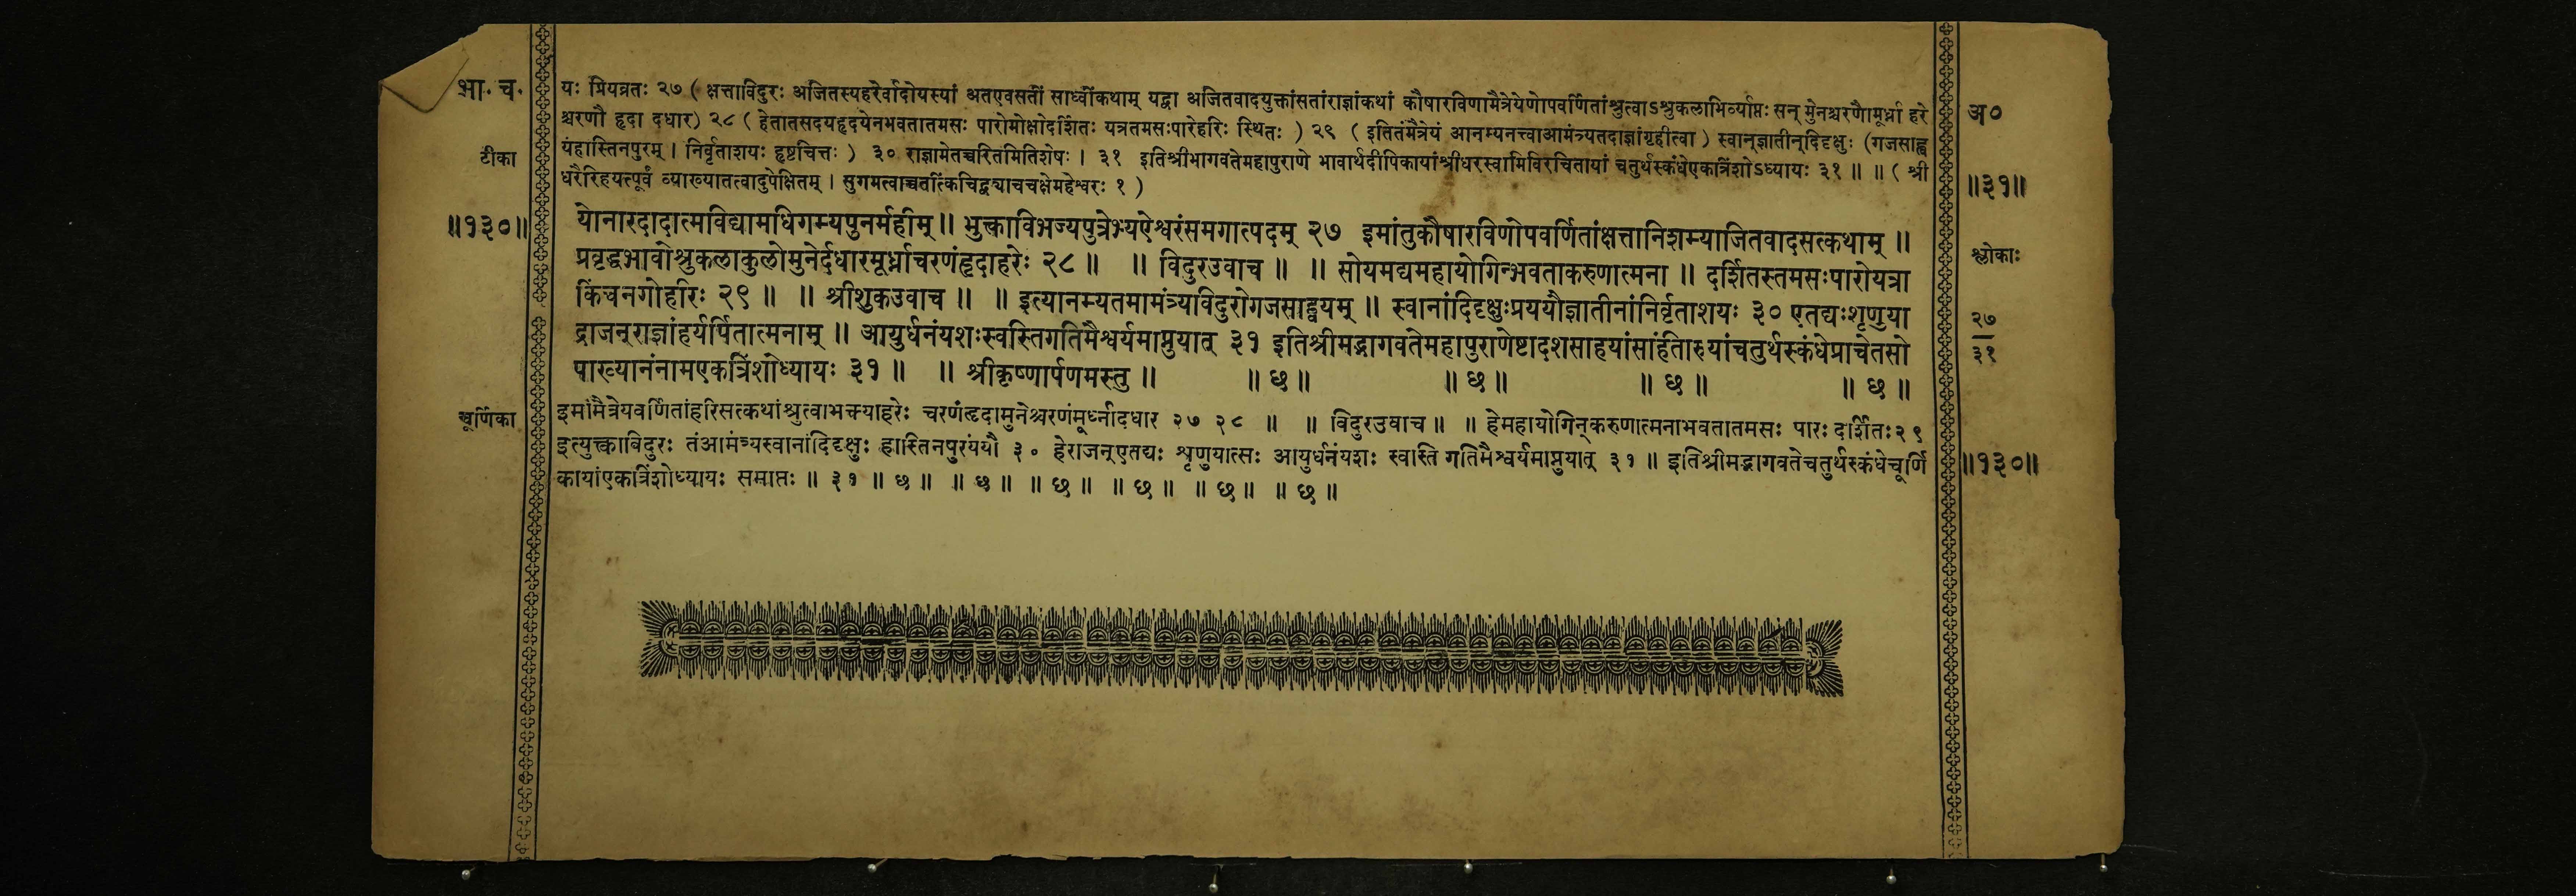 भा. च.
यः प्रियव्रतः २७ ( क्षत्ताविदुरः अजितस्यहरेर्वादोयस्यां अतएवसतीं साध्वींकथाम् यद्वा अजितवादयुक्तांसतांराज्ञांकथां कौषारविणामैत्रेयेणोपवर्णितांश्रुत्वाऽश्रुकलाभिर्व्याप्तः सन् मुनेश्चरणौमूर्ध्ना हरे
अ०
श्चरणौ हृदा दधार) २८ ( हेतातसदयहृदयेनभवतातमसः पारोमोक्षोदर्शितः यत्रतमसःपारेहरिः स्थितः ) २९ ( इतितंमैत्रेयं आनम्यनत्त्वाआमंत्र्यतदाज्ञांगृहीत्वा ) स्वान्ज्ञातीन्दिदृक्षुः (गजसाह्व
टीका
यंहास्तिनपुरम् । निर्वृताशयः हृष्टचित्तः ) ३० राज्ञामेतच्चरितमितिशेषः । ३१ इतिश्रीभागवतेमहापुराणे भावार्थदीपिकायांश्रीधरस्वामिविरचितायां चतुर्थस्कंधेएकत्रिंशोऽध्यायः ३१ ॥ ॥ ( श्री
धरैरिहयत्पूर्वं व्याख्यातत्वादुपेक्षितम् । सुगमत्वाच्चतत्किंचिद्व्याचचक्षेमहेश्वरः १ )
॥३१॥
॥१३०॥
योनारदादात्मविद्यामधिगम्यपुनर्महीम् ॥ भुक्त्काविभज्यपुत्रेभ्यऐश्वरंसमगात्पदम् २७ इमांतुकौषारविणोपवर्णितांक्षत्तानिशम्याजितवादसत्कथाम् ॥
प्रवृद्धभावोश्रुकलाकुलोमुनेर्दधारमूर्ध्नाचरणंहृदाहरेः २८ ॥ ॥ विदुरउवाच ॥ ॥ सोयमद्यमहायोगिन्भवताकरुणात्मना ॥ दर्शितस्तमसःपारोयत्रा
श्लोकाः
किंचनगोहरिः २९ ॥ ॥ श्रीशुकउवाच ॥ ॥ इत्यानम्यतमामंत्र्यविदुरोगजसाह्वयम् ॥ स्वानांदिदृक्षुःप्रययौज्ञातीनांनिर्वृताशयः ३० एतद्यःशृणुया
२७
द्राजन्राज्ञांहर्यर्पितात्मनाम् ॥ आयुर्धनंयशःस्वस्तिगतिमैश्वर्यमाप्नुयात् ३१ इतिश्रीमद्भागवतेमहापुराणेष्टादशसाहयांसांर्हतारुयांचतुर्थस्कंधेप्राचेतसो
३१
पाख्यानंनामएकत्रिंशोध्यायः ३१ ॥ ॥ श्रीकृष्णार्पणमस्तु ॥ ॥ छ ॥ ॥ छ ॥ ॥ छ ॥ ॥ छ ॥
चूर्णिका
इमांमैत्रेयवर्णितांहरिसत्कथांश्रुत्वाभक्त्याहरेः चरणंहृदामुनेश्चरणंमूर्ध्नादधार २७ २८ ॥ ॥ विदुरउवाच ॥ ॥ हेमहायोगिन्करुणात्मनाभवतातमसः पारः दर्शितः२९
इत्युक्त्काविदुरः तंआमंत्र्यस्वानांदिदृक्षुः हास्तिनपुरंययौ ३० हेराजन्एतद्यः शृणुयात्सः आयुर्धनंयशः स्वस्ति गतिमैश्वर्यमाप्नुयात् ३१ ॥ इतिश्रीमद्भागवतेचतुर्थस्कंधेचूर्णि
॥१३०॥
कायांएकत्रिंशोध्यायः समाप्तः ॥ ३१ ॥ छ ॥ ॥ छ ॥ ॥ छ ॥ ॥ छ ॥ ॥ छ ॥ ॥ छ ॥